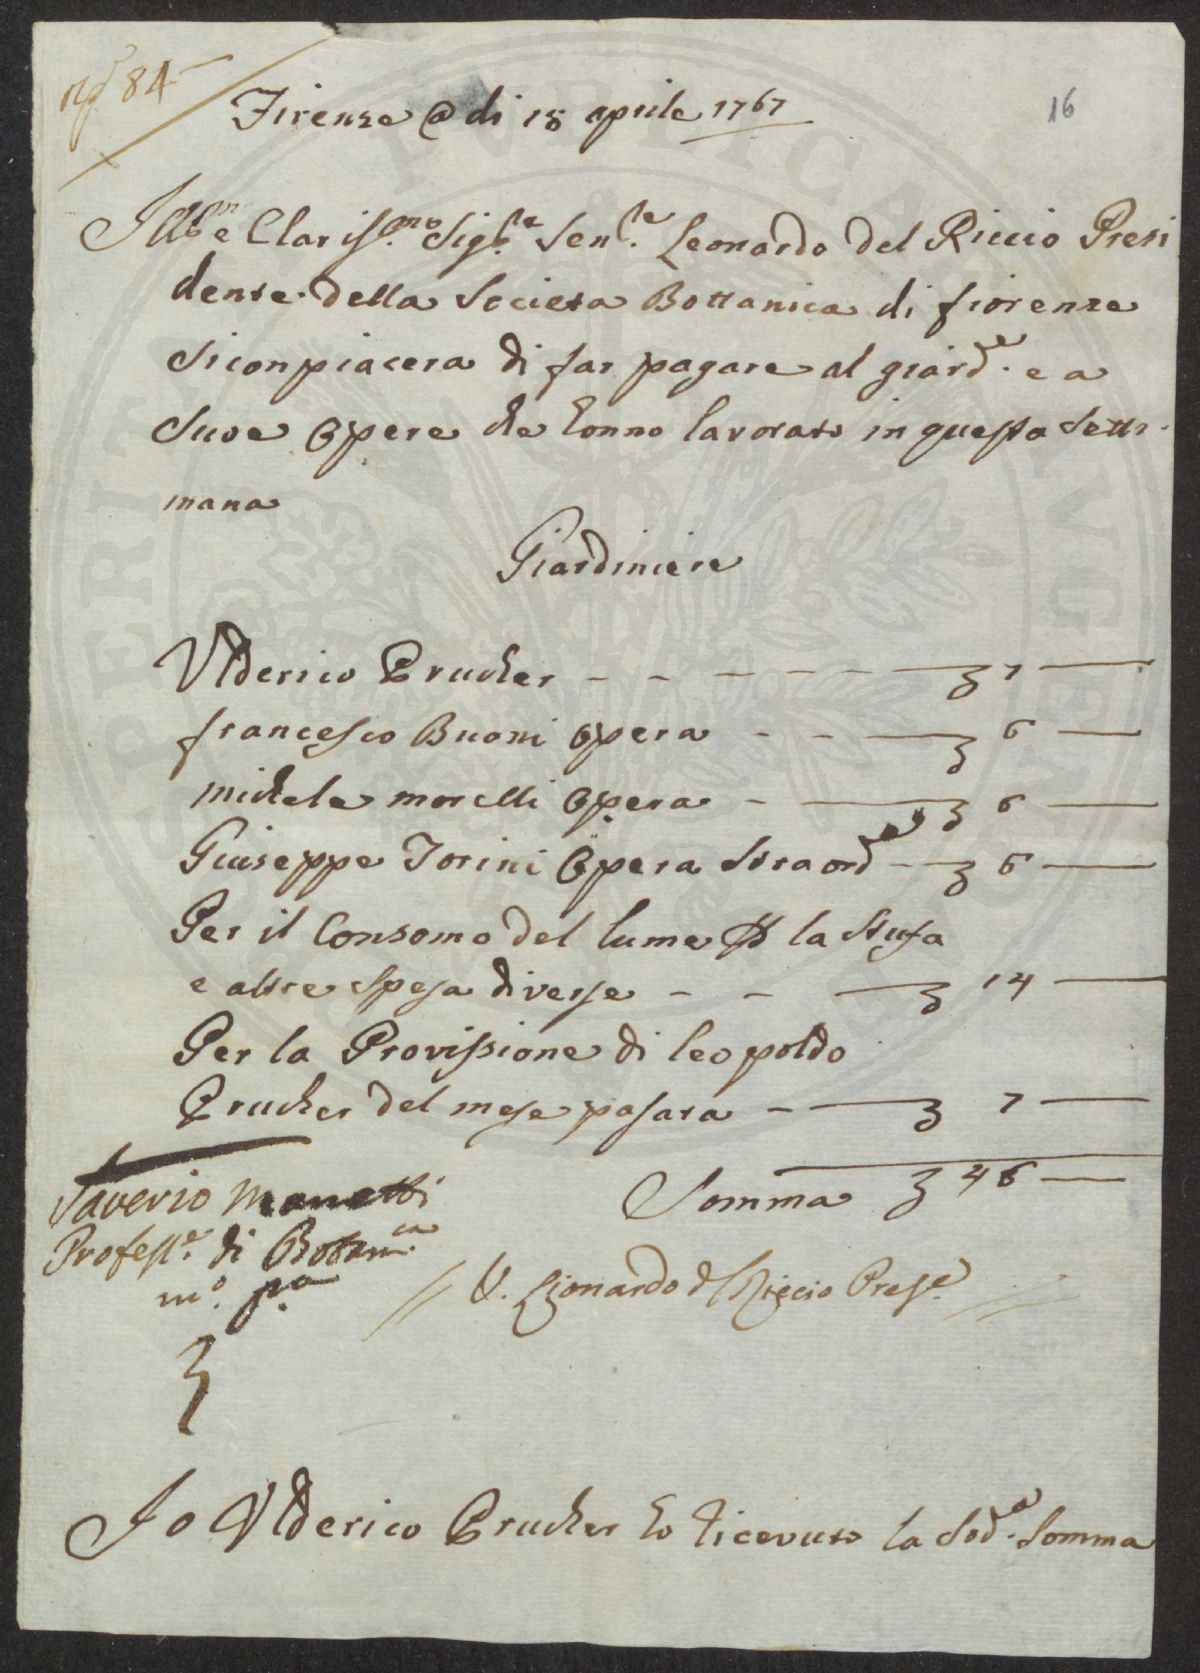 n.º 84
16
Firenze @ di 18 aprile 1767
Ill.mo e Clariss.mo Sig.re Sen.re Leonardo del Riccio Presi
dente della Societa Bottanica di fiorenze
Si conpiacera di far pagare al giard.e e a
Suoe Opere che honno lavorato in questa Setti-
mana
Giardiniere
Ulderico Prucher - - - - - - ʒ 7 —
francesco Buoni Opera - - — ʒ 6 —
michele morelli Opera - — ʒ 6 —
Giuseppe Torini Opera Straord.a — ʒ 6 —
Per il Consomo del lume per la Stufa
e altre Spese diverse - - — ʒ 14 —
Per la Provissione di leopoldo
Prucher del mese pasara - — ʒ 7 —
Somma ʒ 46 —
Saverio Manetti
Profess.e di Botan.ca
m.o p.a
V. Lionardo d Riccio Pres.e
Io Ulderico Prucher ho ricevuto la Sod.a Somma